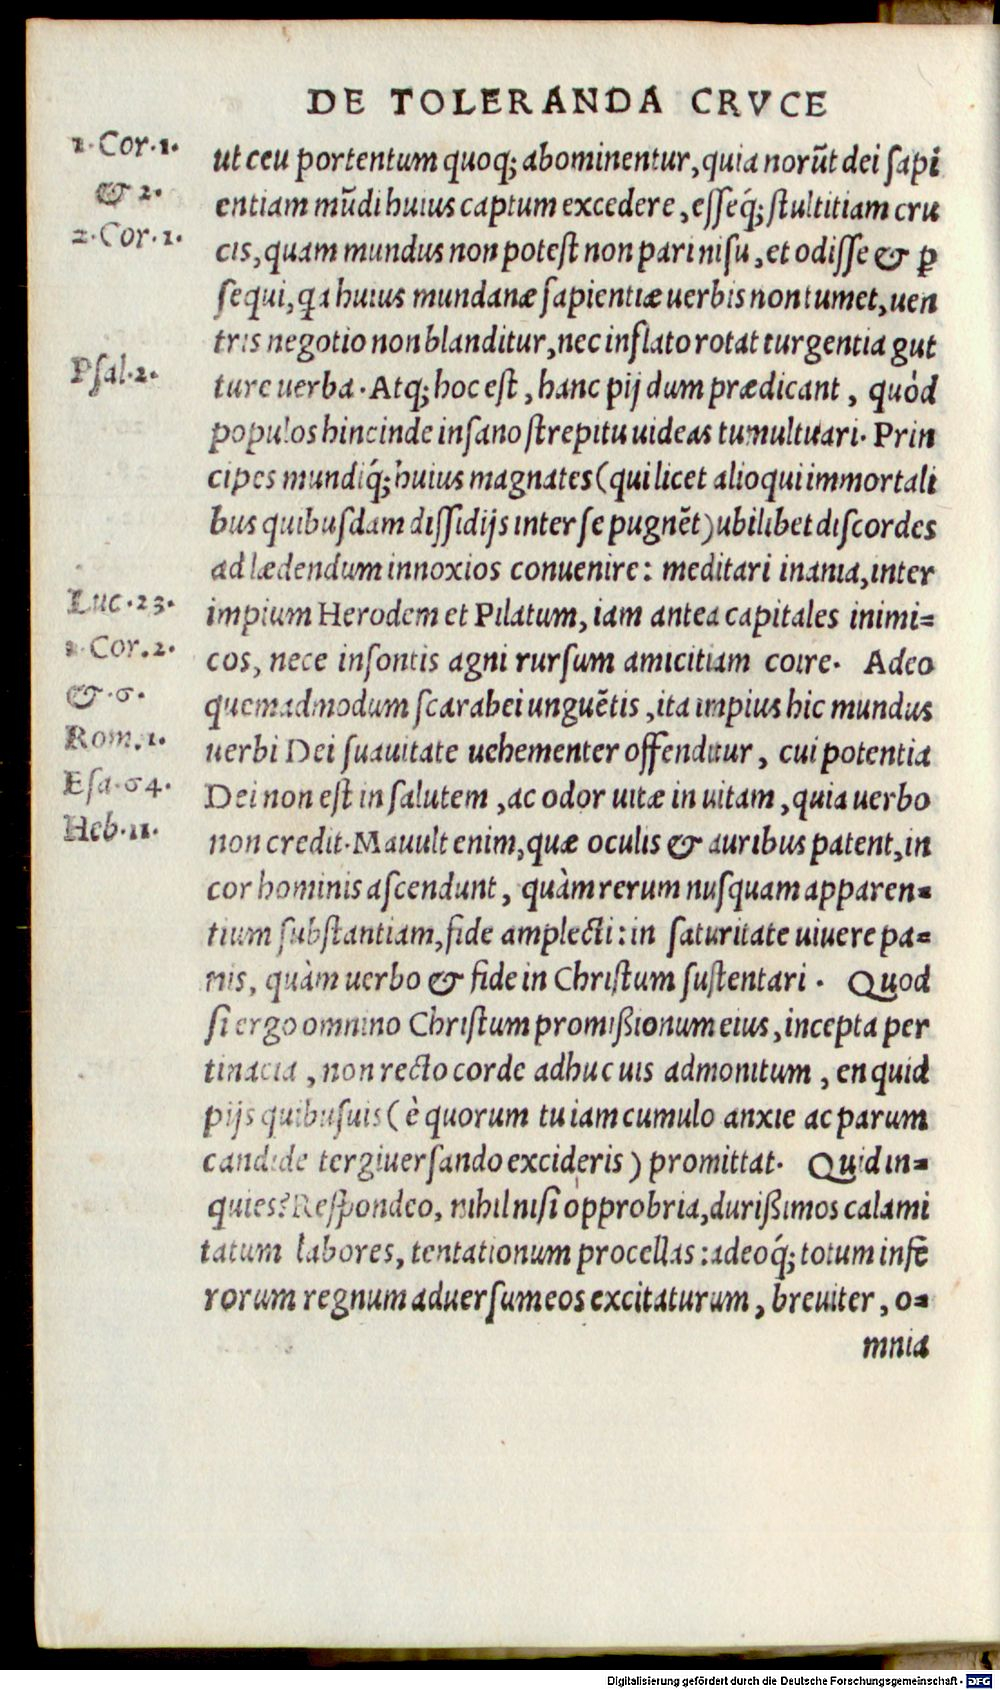 DE TOLERANDA CRVCE
1. Cor. 1.
& 2.
2. Cor. 1.
Psal. 2.
Luc. 23.
1. Cor. 2.
& .6.
Rom. 1.
Esa. 64.
Heb. 11.
ut ceu portentum quoq; abominentur, quia norūt dei sapi
entiam mūdi huius captum excedere, esseq́; stultitiam cru
cis, quam mundus non potest non pari nisu, et odisse & ꝑ
sequi, qa huius mundanæ sapientiæ uerbis non tumet, uen
tris negotio non blanditur, nec inflato rotat turgentia gut
ture uerba. Atq; hoc est, hanc pij dum prædicant, quòd
populos hincinde insano strepitu uideas tumultuari. Prin
cipes mundiq́; huius magnates (qui licet alioqui immortali
bus quibusdam dissidijs inter se pugnēt) ubilibet discordes
ad lædendum innoxios conuenire: meditari inania, inter
impium Herodem et Pilatum, iam antea capitales inimi=
cos, nece insontis agni rursum amicitiam coire. Adeo
quemadmodum scarabei unguētis, ita impius hic mundus
uerbi Dei suauitate uehementer offenditur, cui potentia
Dei non est in salutem, ac odor uitæ in uitam, quia uerbo
non credit. Mauult enim, quæ oculis & auribus patent, in
cor hominis ascendunt, quàm rerum nusquam apparen=
tium substantiam, fide amplecti: in saturitate uiuere pa=
nis, quàm uerbo & fide in Christum sustentari. Quod
si ergo omnino Christum promißionum eius, incepta per
tinacia, non recto corde adhuc uis admonitum, en quid
pijs quibusuis (è quorum tu iam cumulo anxie ac parum
candide tergiuersando excideris) promittat. Quid in=
quies? Respondeo, nihil nisi opprobria, durißimos calami
tatum labores, tentationum procellas: adeoq́; totum infe
rorum regnum aduersum eos excitaturum, breuiter, o=
mnia
Digitalisierung gefördert durch die Deutsche Forschungsgemeinschaft - DFG